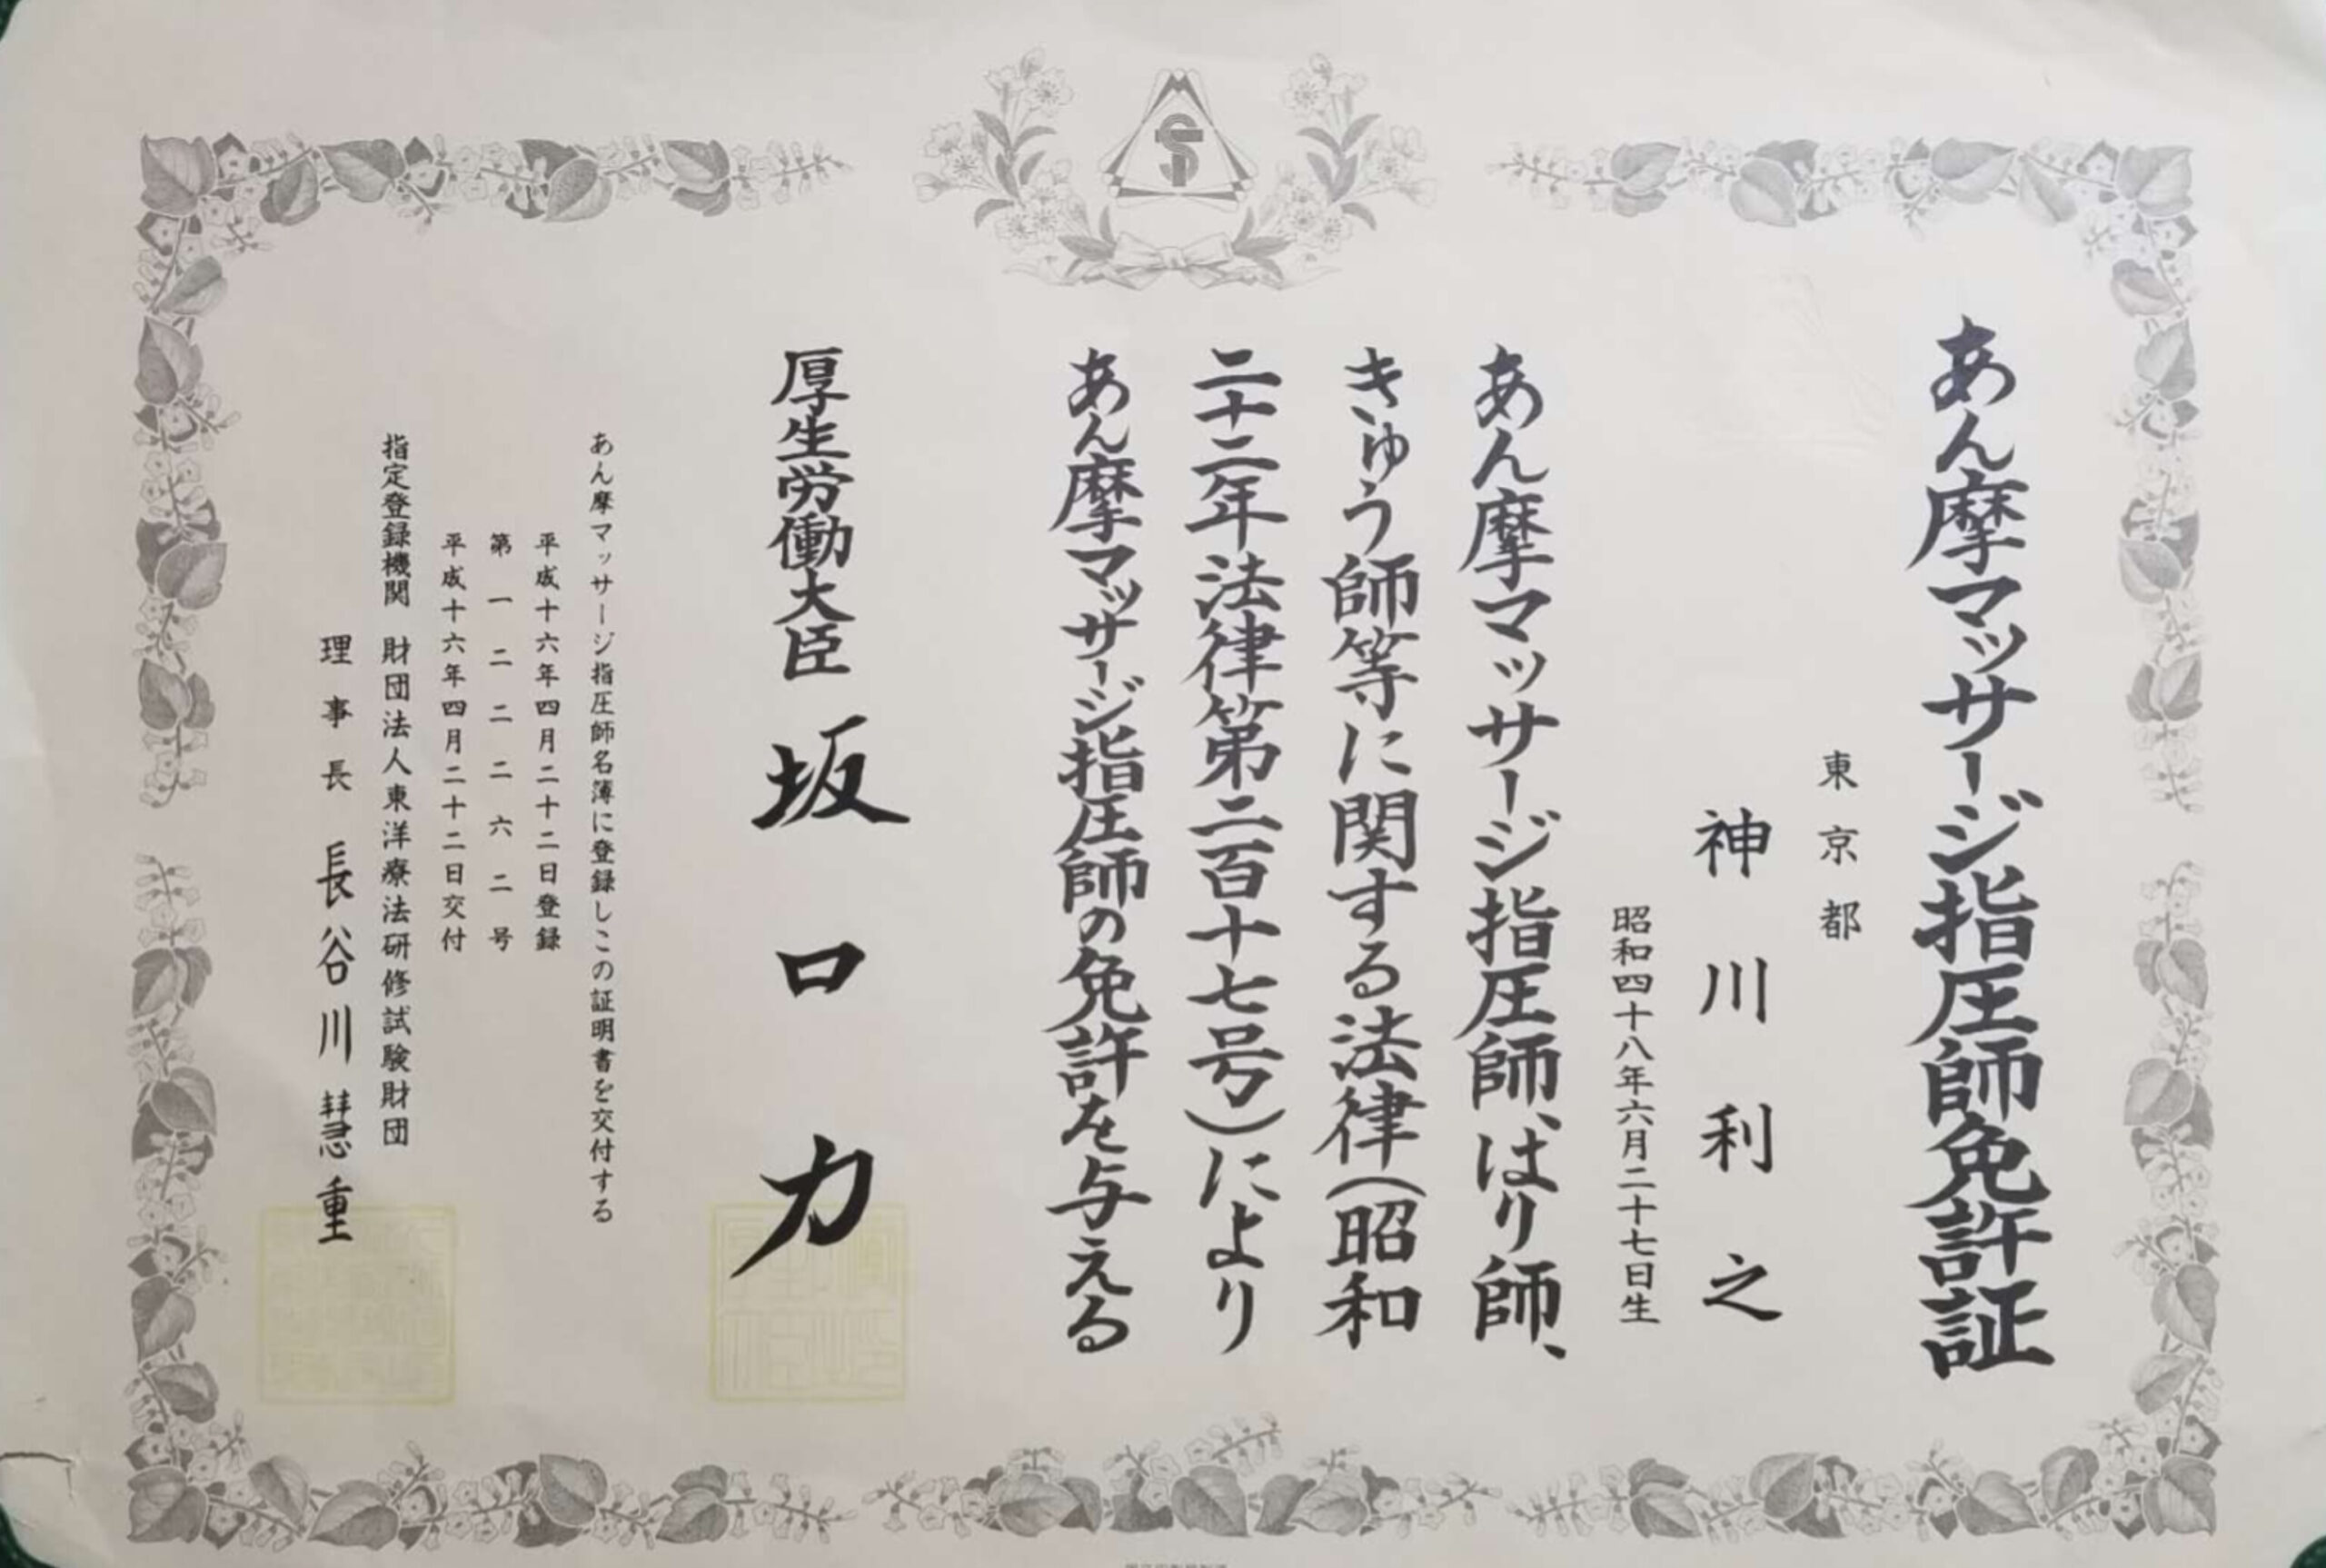 あん摩マッサージ指圧師免許証
東京都
神川利之
昭和四十八年六月二十七日生
あん摩マッサージ指圧師、はり師、
きゅう師等に関する法律(昭和
二十二年法律第二百十七号)により
あん摩マッサージ指圧師の免許を与える
厚生労働大臣 坂口力
あん摩マッサージ指圧師名簿に登録しこの証明書を交付する
平成十六年四月二十二日登録
第一二二二六二号
平成十六年四月二十二日交付
指定登録機関 財団法人東洋療法研修試験財団
理事長 長谷川慧重